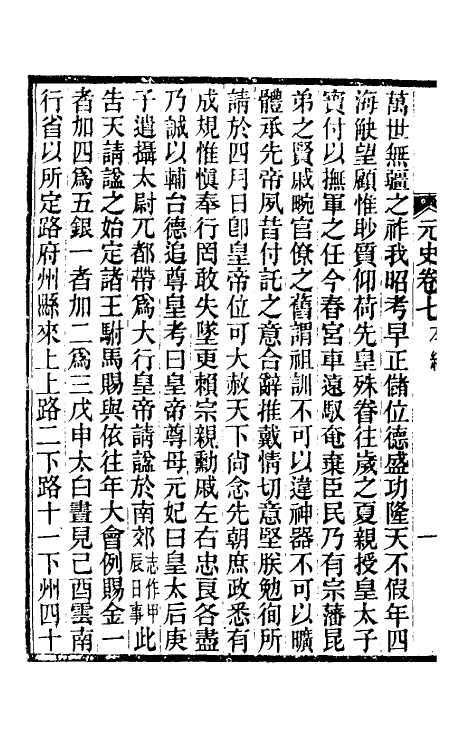 元史卷七 本紀 一
萬世無疆之祚我昭考早正儲位德盛功隆天不假年四
海觖望顧惟眇質仰荷先皇殊眷往歲之夏親授皇太子
寶付以撫軍之任今春宮車遠馭奄棄臣民乃有宗藩昆
弟之賢戚畹官僚之舊謂祖訓不可以違神器不可以曠
體承先帝夙昔付託之意合辭推戴情切意堅朕勉徇所
請於四月日卽皇帝位可大赦天下尙念先朝庶政悉有
成規惟愼奉行罔敢失墜更賴宗親勳戚左右忠良各盡
乃誠以輔台德追尊皇考曰皇帝尊母元妃曰皇太后庚
子遣攝太尉兀都帶爲大行皇帝請謚於南郊志作甲辰日事此
告天請謚之始定諸王駙馬賜與依往年大會例賜金一
者加四爲五銀一者加二爲三戊申太白晝見己酉雲南
行省以所定路府州縣來上上路二下路十一下州四十